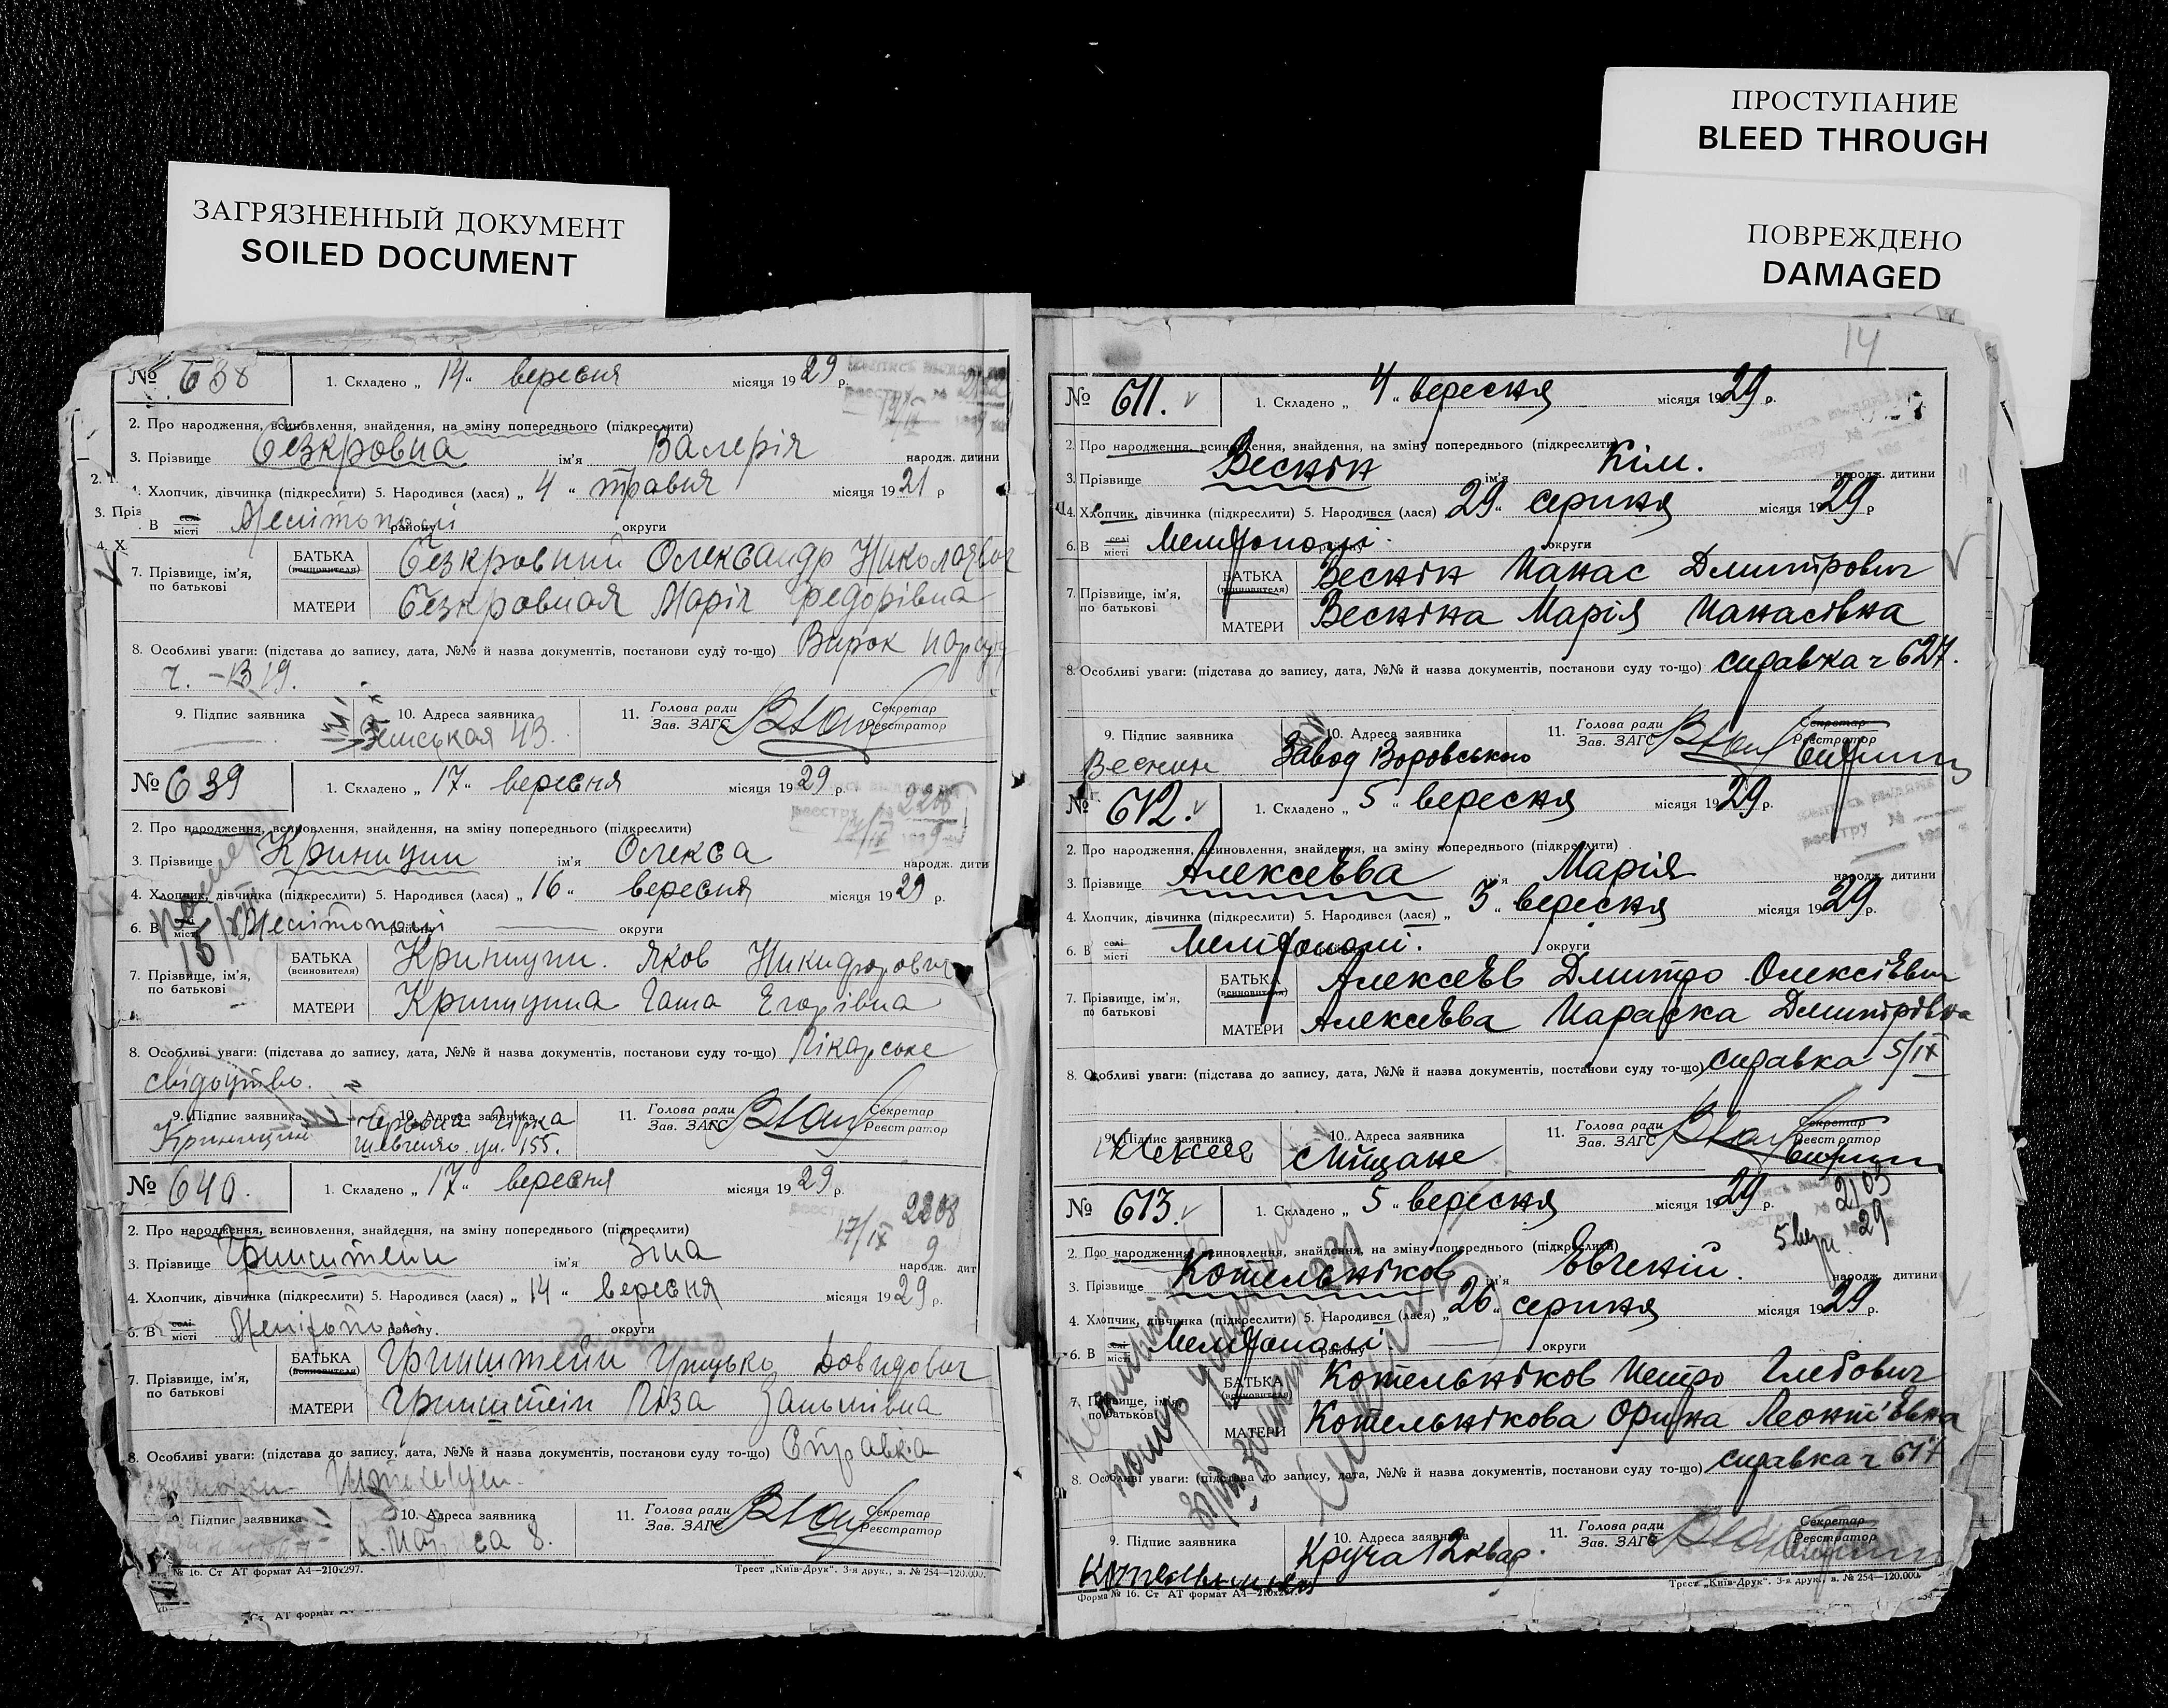 ЗАГРЯЗНЕННЫЙ ДОКУМЕНТ
SOILED DOCUMENT
ПРОСТУПАНИЕ
BLEED THROUGH
ПОВРЕЖДЕНО
DAMAGED
№ 638
1. Складено „ 14 “ вересня місяця 1929 р.
2. Про народження, всиновлення, знайдення, на зміну попереднього (підкреслити)
3. Прізвище Безкровна ім'я Валерія народж. дитини
4. Хлопчик, дівчинка (підкреслити) 5. Народився (лася) „ 4 “ травня місяця 1921 р
В селі місті Мелітополі району округи
7. Прізвище, ім'я, по батькові
БАТЬКА (всиновителя) Безкровний Олександр Николаєвич
МАТЕРИ Безкровная Марія Федорівна
8. Особливі уваги: (підстава до запису, дата, №№ й назва документів, постанови суду то-що) Вирок
ч. –1319.
9. Підпис заявника
10. Адреса заявника
43.
11. Голова ради Зав. ЗАГС
Секретар Реєстратор
№ 639
1. Складено „ 17 “ вересня місяця 1929 р.
2. Про народження, всиновлення, знайдення, на зміну попереднього (підкреслити)
3. Прізвище Криницин ім'я Олекса народж. дити
4. Хлопчик, дівчинка (підкреслити) 5. Народився (лася) „ 16 “ вересня місяця 1929 р.
6. В селі місті Мелітополі району округи
7. Прізвище, ім'я, по батькові
БАТЬКА (всиновителя) Криницин Яков Никифорович
МАТЕРИ Криницина Егорівна
8. Особливі уваги: (підстава до запису, дата, №№ й назва документів, постанови суду то-що) Лікарське
свідоцтво.
9. Підпис заявника Криницин
10. Адреса заявника Червона Гірка
Шевченко ул. 155.
11. Голова ради Зав. ЗАГС
Секретар Реєстратор
№ 640.
1. Складено „ 17 “ вересня місяця 1929 р.
2208
17/IX 9
2. Про народження, всиновлення, знайдення, на зміну попереднього (підкреслити)
3. Прізвище Гринштейн ім'я Зіна народж. дит
4. Хлопчик, дівчинка (підкреслити) 5. Народився (лася) „ 14 “ вересня місяця 1929 р.
6. В селі місті Мелітополі району. округи
7. Прізвище, ім'я, по батькові
БАТЬКА (всиновителя) Гринштейн Грицько Довидович
МАТЕРИ Гринштейн Ліза
8. Особливі уваги: (підстава до запису, дата, №№ й назва документів, постанови суду то-що) Справка
9. Підпис заявника
10. Адреса заявника
К. Маркса 8.
11. Голова ради Зав. ЗАГС
Секретар Реєстратор
№ 16. Ст АТ формат А4—210х297.
Трест „Київ-Друк“. 3-я друк., з. № 254—120.000.
14
№ 611.
1. Складено „ 4 “ вересня місяця 1929 р.
2. Про народження, всиновлення, знайдення, на зміну попереднього (підкреслити)
3. Прізвище Веснін ім'я Кім. народж. дитини
4. Хлопчик, дівчинка (підкреслити) 5. Народився (лася) 29 “ серпня місяця 1929 р
6. В селі місті Мелітополі. району округи
7. Прізвище, ім'я, по батькові
БАТЬКА (всиновителя) Веснін Панас Дмитрович
МАТЕРИ Весніна Марія Панасівна
8. Особливі уваги: (підстава до запису, дата, №№ й назва документів, постанови суду то-що) справка ч 627.
9. Підпис заявника Веснин
10. Адреса заявника Завод Воровського
11. Голова ради Зав. ЗАГС
Секретар Реєстратор
№ 612.
1. Складено „ 5 “ вересня місяця 1929 р.
2. Про народження, всиновлення, знайдення, на зміну попереднього (підкреслити)
3. Прізвище Алексеєва ім'я Марія народж. дитини
4. Хлопчик, дівчинка (підкреслити) 5. Народився (лася) „ 3 “ вересня місяця 1929 р.
6. В селі місті Мелітополі. округи
7. Прізвище, ім'я, по батькові
БАТЬКА (всиновителя) Алексеєв Дмитро Олексієвич
МАТЕРИ Алексеєва Параска Дмитрівна
8. Особливі уваги: (підстава до запису, дата, №№ й назва документів, постанови суду то-що) справка 5/IX
9. Підпис заявника
10. Адреса заявника Міщане
11. Голова ради Зав. ЗАГС
Секретар Реєстратор
№ 613.
1. Складено „ 5 “ вересня місяця 1929 р.
2103
5 вер. 29
2. Про народження, всиновлення, знайдення, на зміну попереднього (підкреслити)
3. Прізвище Котельніков ім'я Евгеній. народж. дитини
4. Хлопчик, дівчинка (підкреслити) 5. Народився (лася) „ 26 “ серпня місяця 1929 р.
6. В селі місті Мелітополі. району округи
7. Прізвище, ім'я, по батькові
БАТЬКА (всиновителя) Котельніков Петро Глебович
МАТЕРИ Котельнікова Орина Леонтієвна
8. Особливі уваги: (підстава до запису, дата, №№ й назва документів, постанови суду то-що) справка ч 617
9. Підпис заявника
10. Адреса заявника Круча 12 квар.
11. Голова ради Зав. ЗАГС
Секретар Реєстратор
Форма № 16. Ст АТ формат А4—210х297.
Трест „Київ-Друк“. 3-я друк., в. № 254—120.000.